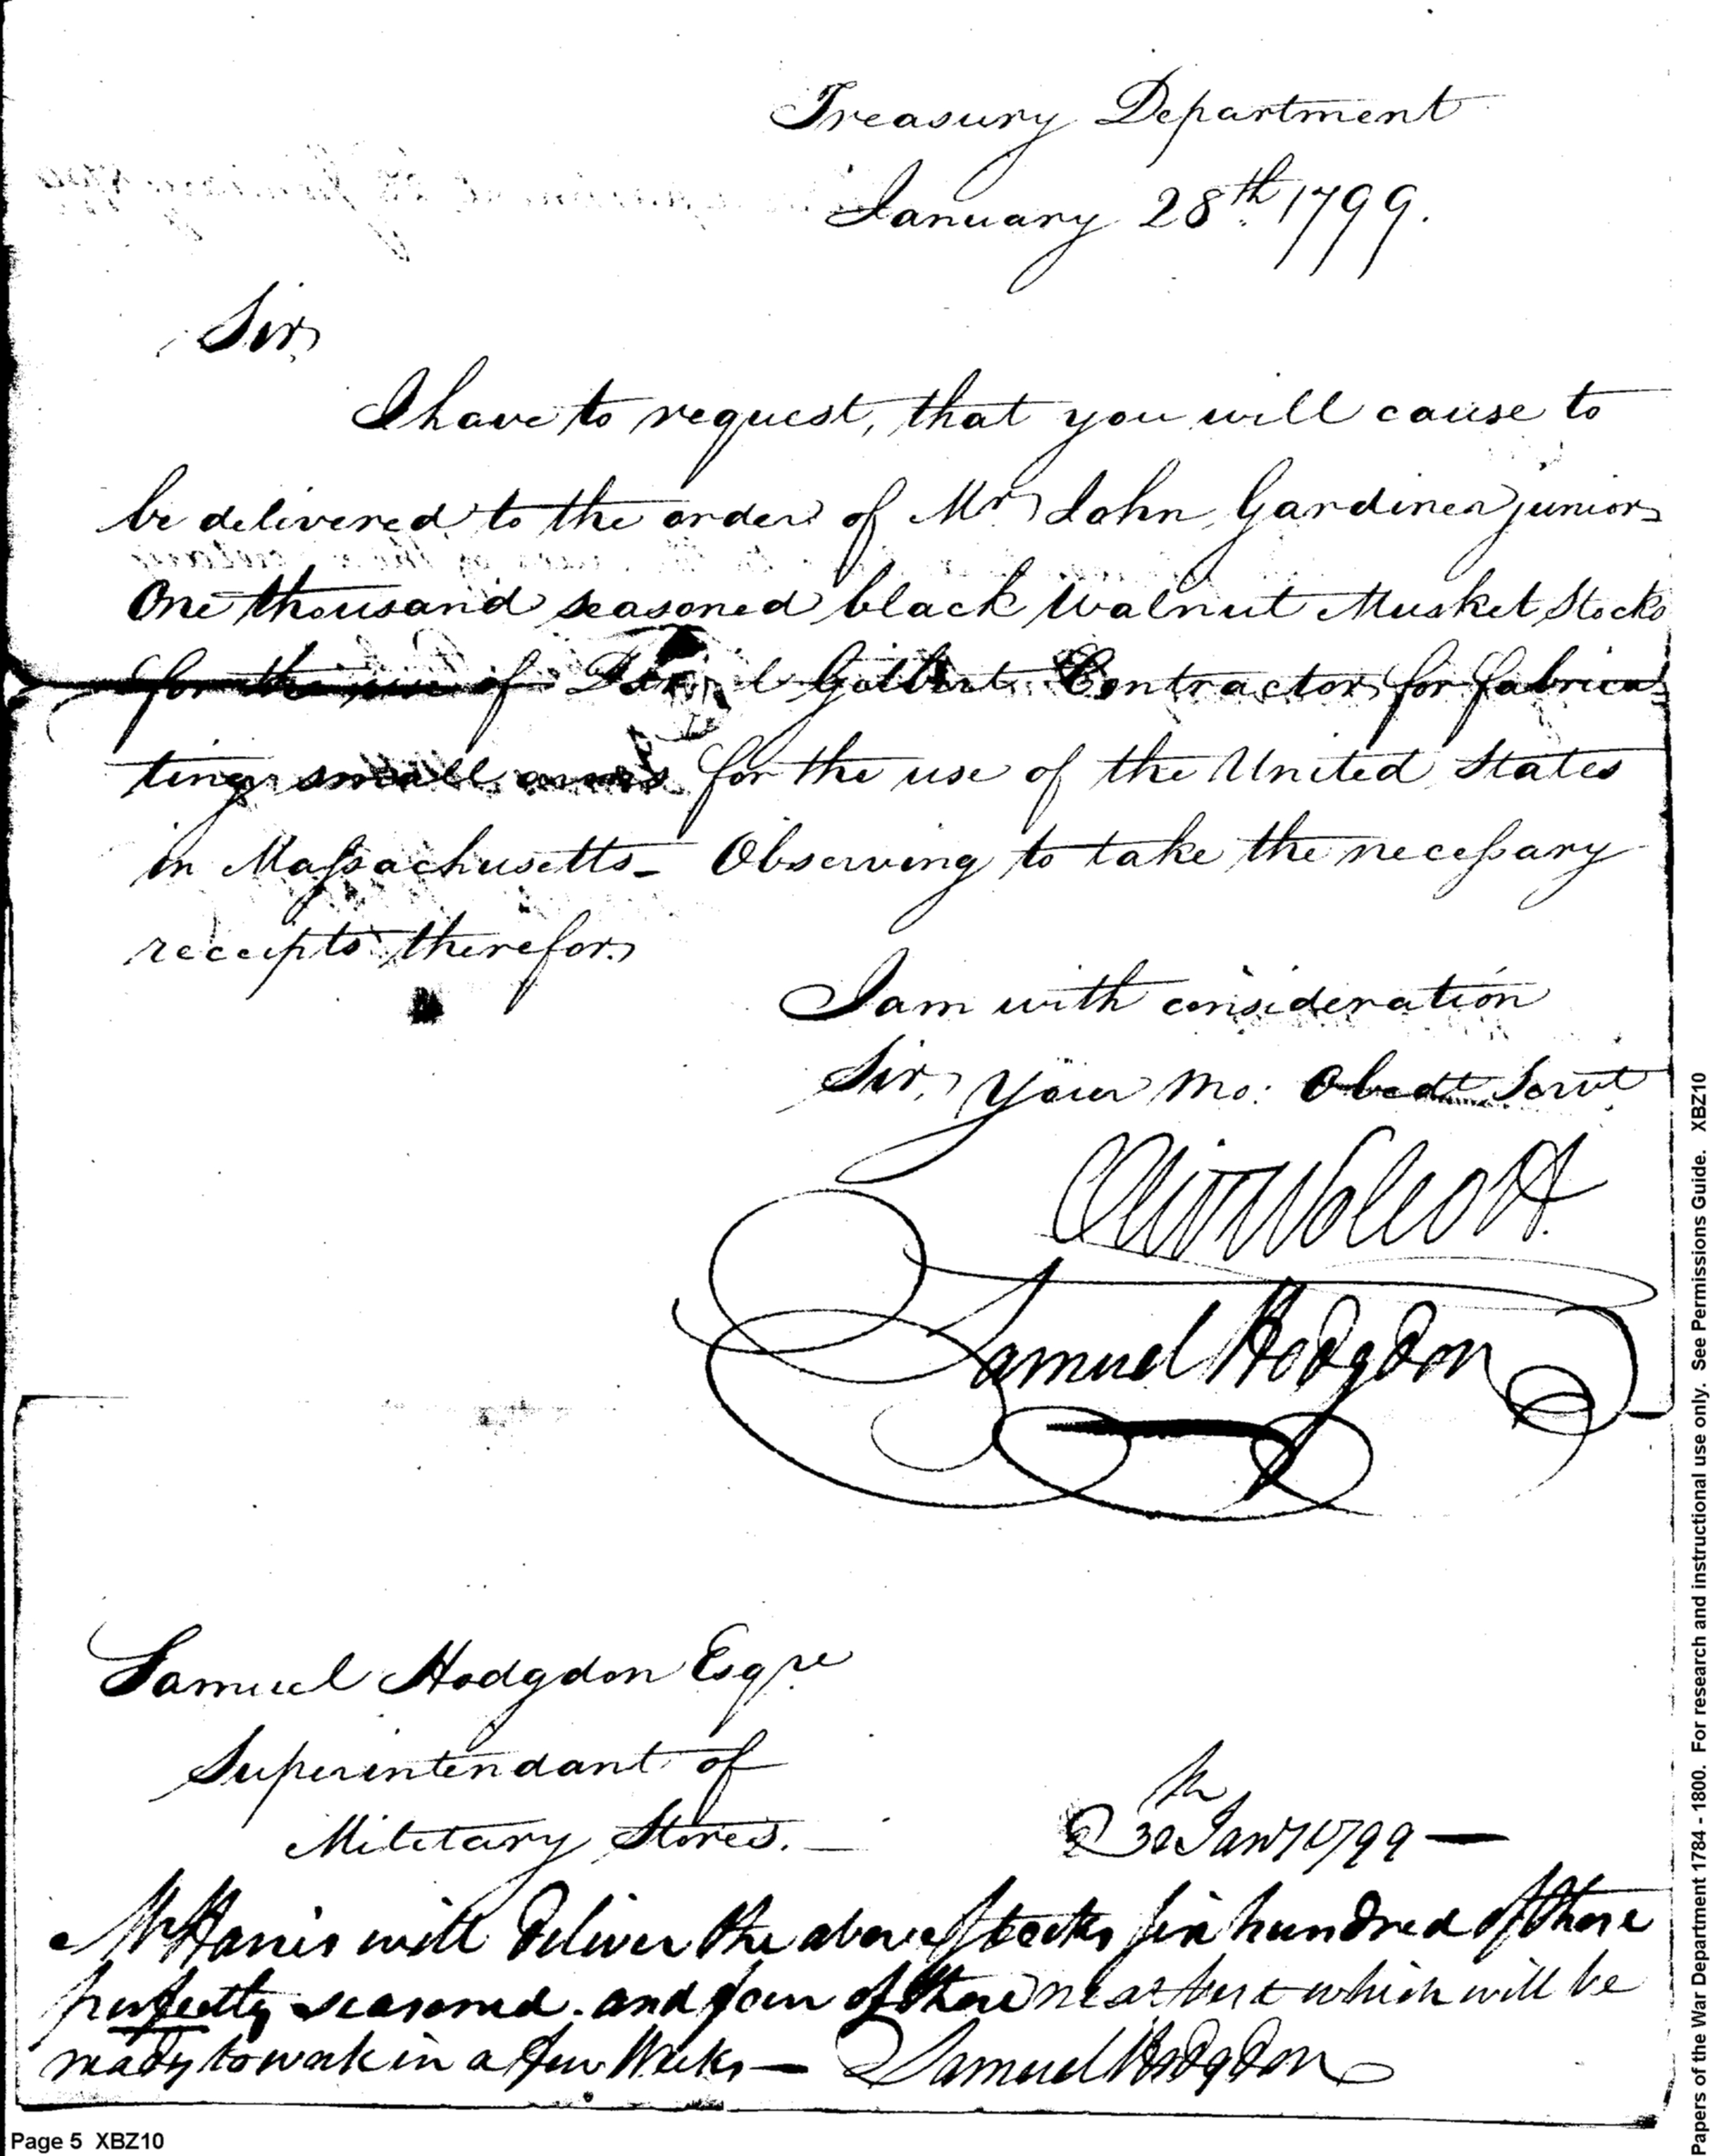 Treasury Department
January 28th 1799.
Sir,
I have to request, that you will cause to
be delivered to the order of Mr John Gardiner junior
One thousand seasoned black Walnut Musket Stocks
for the use of Daniel Gilbert Contractor for fabrica
ting small arms for the use of the United States
in Massachusetts_ Observing to take the necessary
receipts therefor.
I am with consideration
Sir, your Mo: Obedt Servt
Oliv Wolcott.
Samuel Hodgdon
Samuel Hodgdon Esqre
Superintendant of
Military Stores. —
30th Jany 1799 —
Mr Harris will deliver the above stocks six hundred of these
perfectly seasoned. and four of these next best which will be
ready to work in a few Weeks — Samuel Hodgdon
Page 5 XBZ10
Papers of the War Department 1784 - 1800. For research and instructional use only. See Permissions Guide. XBZ10